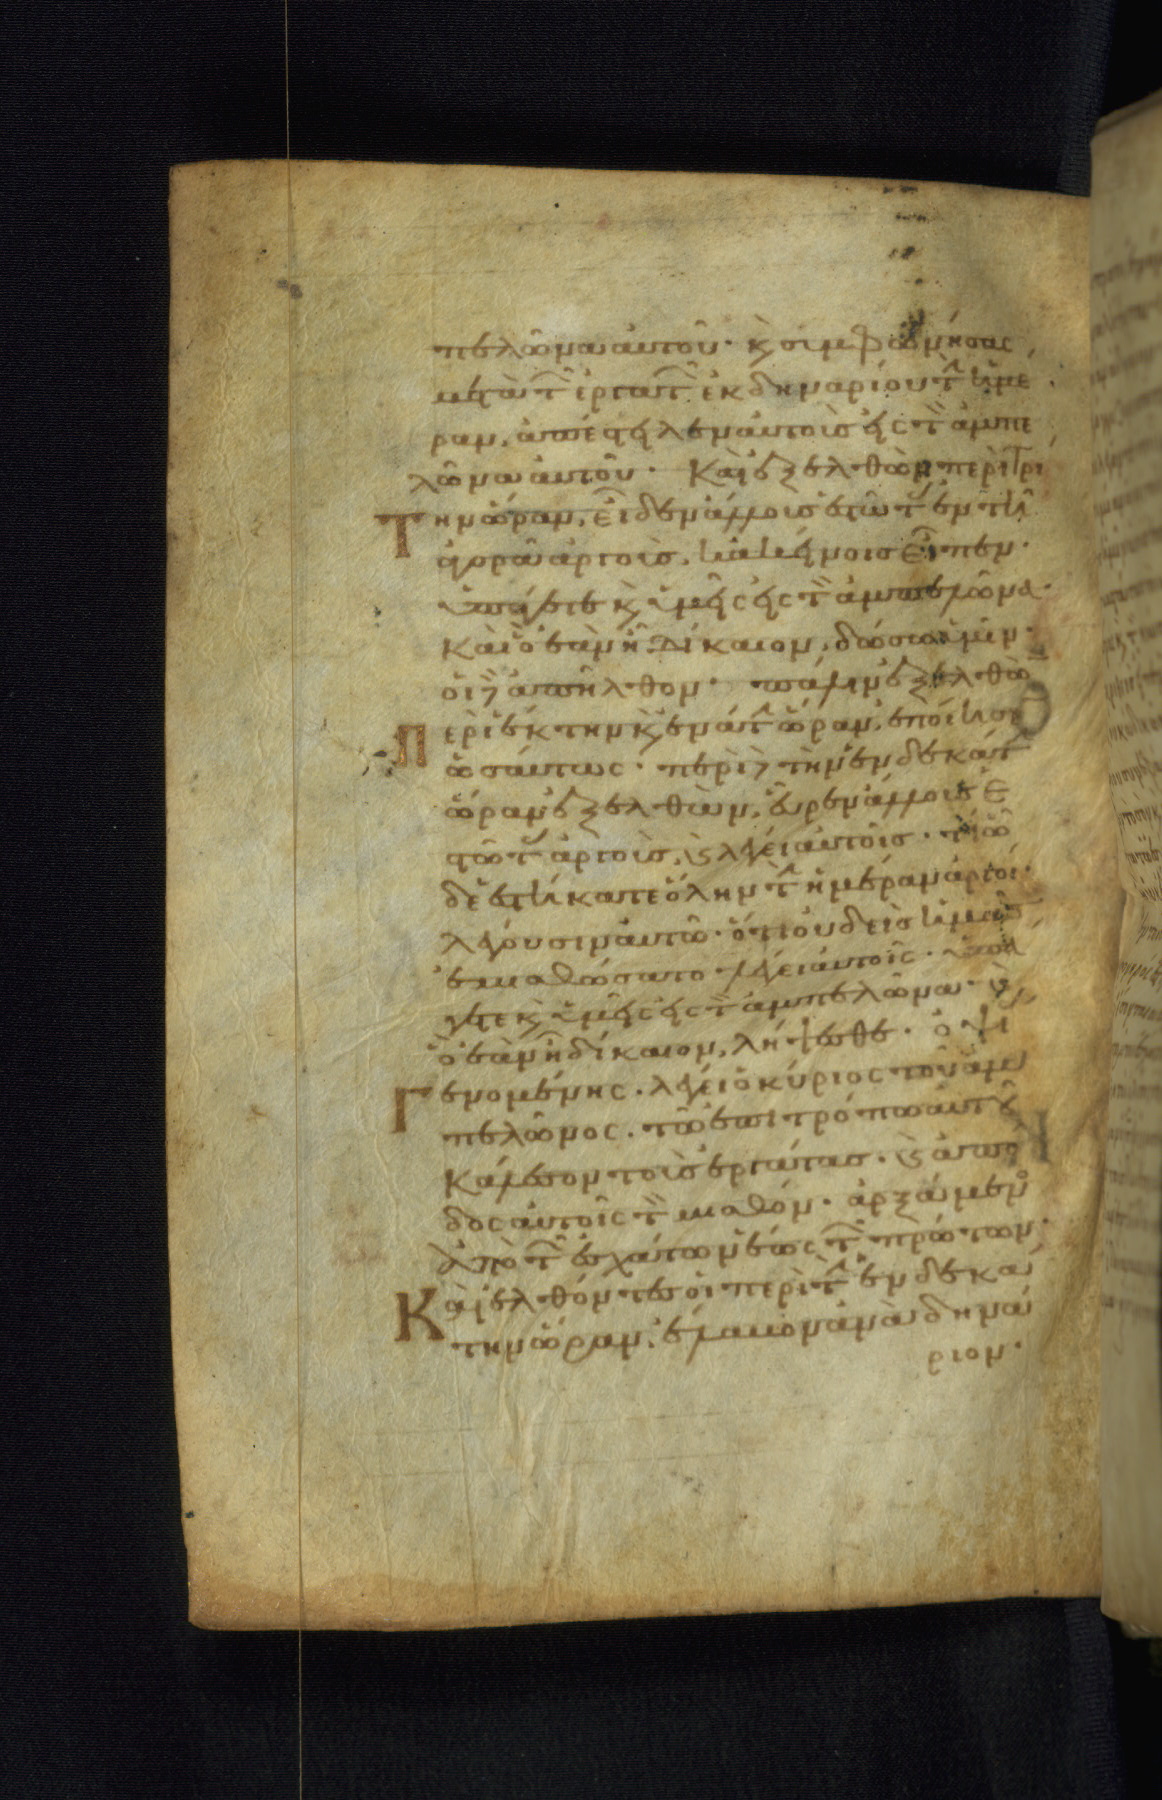 πελῶνα αὐτοῦ· κ̀ συμφωνήσας
μετὰ τ̑ ἐργατ̑ ἐκ δηναρίου τ̑ ἡμέ
ραν, ἀπέστειλεν αὐτοὺς εἰς τ̏ ἀμπε
λῶνα αὐτοῦ· Καὶ ἐξελθὼν περὶ τρί
τὴν ὥραν, εἶδεν ἄλλους ἑστῶτ ἐν τῆ
ἀγορᾶ ἀργοὺς, κακείνοις εἶπεν·
ὑπάγετε κ̀ ὑμεῖς εἰς τ̏ ἀμπελῶνα·
Καὶ ὃ ἐὰν ἦ δίκαιον, δώσω ὑμῖν·
οἱ δ ἀπῆλθον· πάλιν ἐξελθὼ
Περὶ ἕκτην κ̀ ἐνάτ ὥραν, ἐποίησε
ὡσαύτως· περὶ δ τὴν ἑνδεκάτ
ὥραν ἐξελθὼν, εὗρεν ἄλλους ἑ
στῶτ ἀργοὺς, κ̀ λέγει αὐτοῖς· τί ὧ
δε ἑστήκατε ὅλην τ̑ ἡμέραν ἀργοί·
λέγουσιν αὐτῶ· ὅτι οὐδεὶς ἡμᾶς
ἐμισθώσατο· λέγει αὐτοῖς· ὑπά
γετε κ̀ ὑμεῖς εἰς τ̏ ἀμπελῶνα· κ̀
ὃ ἐὰν ἦ δίκαιον, λήψεσθε· ὀψί
Γενομένης· λέγει ὁ κύριος τοῦ ἀμ
πελῶνος· τῶ ἐπιτρόπω αὐτοῦ
Κάλεσον τοὺς ἐργάτας· κ̀ ἀπό
δος αὐτοῖς τ̏ μισθόν· ἀρξάμενο
ἀπὸ τ̑ ἐσχάτων ἕως τ̑ πρώτων·
Καὶ ἐλθόντες οἱ περὶ τ̑ ἑνδεκά
την ὥραν, ἔλαβον ἀνὰ δηνά
ριον·